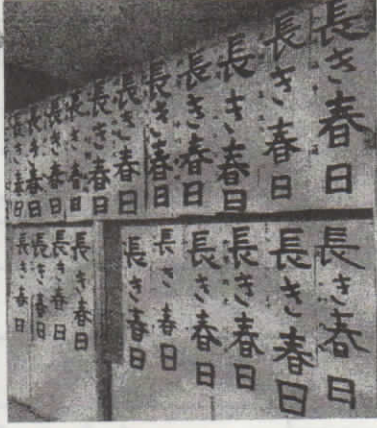 長き春日
長き春日
長き春日
長き春日
長き春日
長き春日
長き春日
長き春日
長き春日
長き春日
長き春日
長き春日
長き春日
長き春日
長き春日
長き春日
長き春日
長き春日
長き春日
長き春日
長き春日